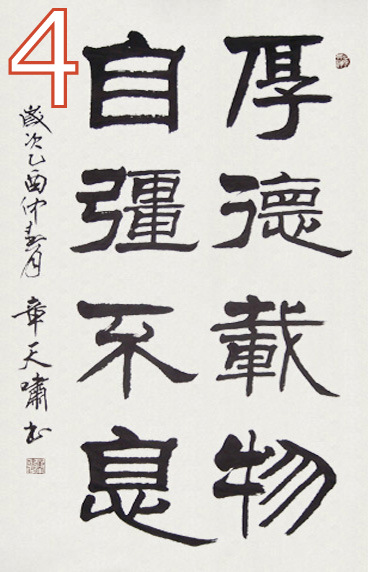 厚德載物
自彊不息
歲次乙酉仲春月 章天嘯書
4